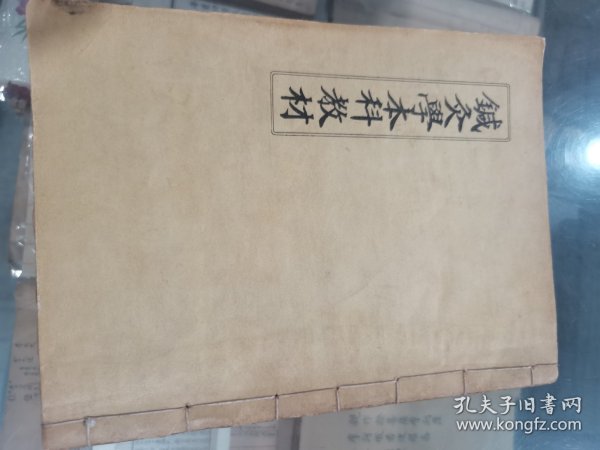 鍼灸學本科教材
孔夫子旧书网
www.kongfz.com